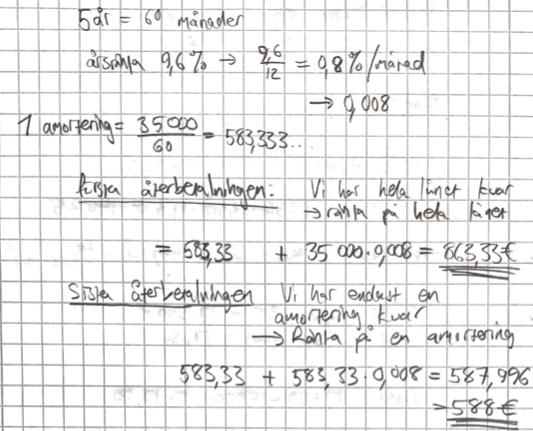 5 år = 60 månader
årsränta 9,6% → 9,6/12 = 0,8%/månad
→ 0,008
1 amortering = 35000/60 = 583,333...
första återbetalningen: Vi har hela lånet kvar
→ ränta på hela lånet
= 583,33 + 35 000 · 0,008 = 863,33€
Sista återbetalningen Vi har endast en
amortering kvar
→ Ränta på en amortering
583,33 + 583,33 · 0,008 = 587,996
= 588€